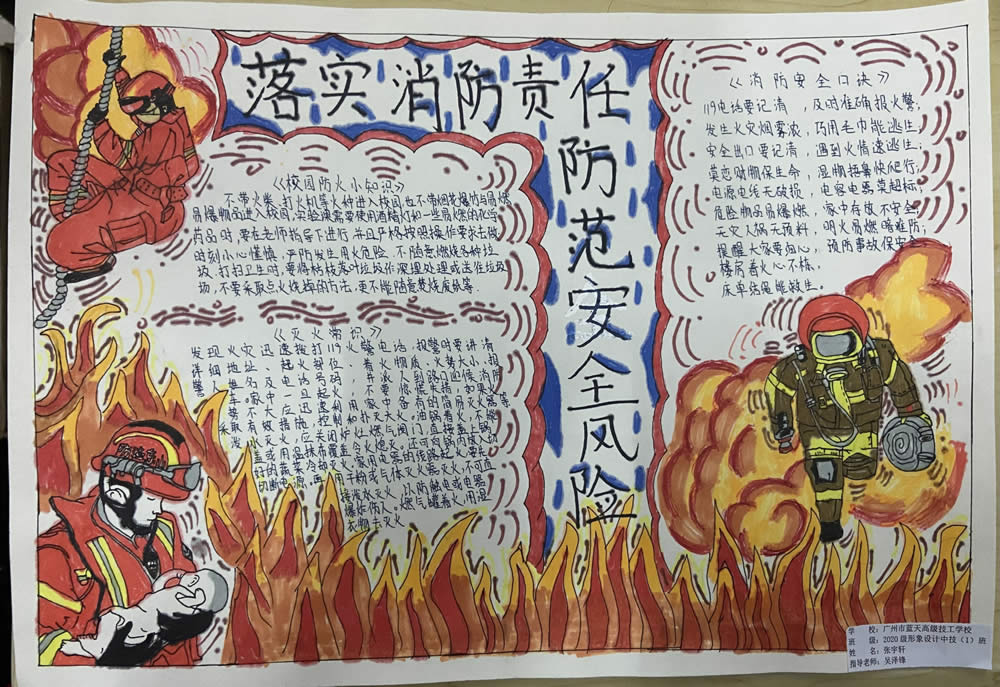 落实消防责任
防范安全风险
《校园防火小知识》
不带火柴、打火机等火种进入校园,也不带烟花爆竹与易燃
易爆物品进入校园,实验课需要使用酒精灯和一些易燃的化学
药品时,要在老师指导下进行,并且严格按照操作要求去做
时刻小心谨慎,严防发生用火危险.不随意燃烧各种垃
圾,打扫卫生时,要将枯枝落叶垃圾作深埋处理或送往垃圾
场,不要采取点火烧掉的方法,更不能随意焚烧废纸等.
《灭火常识》
发现火灾迅速拨打119火警电话,报警时要讲清
详细地址、起火部位、着火物质、火势大小、报
警人姓名及电话号码,并派人到路口迎候消防
车。家中一旦起火,不要惊慌失措,如果火
势不大,应迅速利用家中备有的简易灭火器等
采取有效措施,控制和扑灭大火,油锅着火,不能
泼水灭火,应关闭炉灶燃气阀门,直接盖上锅
盖或用湿抹布覆盖,令火熄灭,还可向锅内放入切
好的蔬菜冷却灭火,家用电器的线路起火,要先
切断电源,再用干粉或气体灭火器灭火,不可直
接泼水灭火,以防触电或电器
爆炸伤人。燃气罐着火,用湿
衣物去灭火
《消防安全口诀》
119电话要记清,及时准确报火警;
发生火灾烟雾浓,巧用毛巾能逃生;
安全出口要记清,遇到火情速逃生;
莫恋财物保生命,湿棉捂鼻快爬行;
电源电线无破损,电容电器莫超标;
危险物品易爆燃,家中存放不安全
无灾人祸无预料,明火易燃暗难防;
提醒大家要细心,预防事故保安全
楼房着火心不惊,
床单结绳能救生。
防火灭火
学 校:广州市蓝天高级技工学校
班 级:2020级形象设计中技(1)班
姓 名:张宇轩
指导老师:吴泽锋